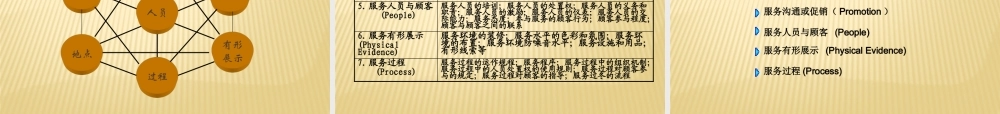 人员
地点
有形
展示
过程
5. 服务人员与顾客
(People)
服务人员的培训；服务人员的处置权；服务人员的义务和
职责；服务人员的激励；服务人员的仪表；服务人员的交
际能力；服务态度；参与服务的顾客行为；顾客参与程度；
顾客与顾客之间的联系
6. 服务有形展示
(Physical
Evidence)
服务环境的装修；服务水中的色彩和氛围；服务环
境的布置；服务环境防噪音水平；服务设施和用品；
有形线索等
7. 服务过程
(Process)
服务过程的运作规程；服务程序；服务过程中的组织机制；
服务过程中的人员处置权的使用规则；服务过程对顾客参
与的规定；服务过程对顾客的指导；服务过术的流程
服务沟通或促销（ Promotion ）
服务人员与顾客 (People)
服务有形展示 (Physical Evidence)
服务过程 (Process)